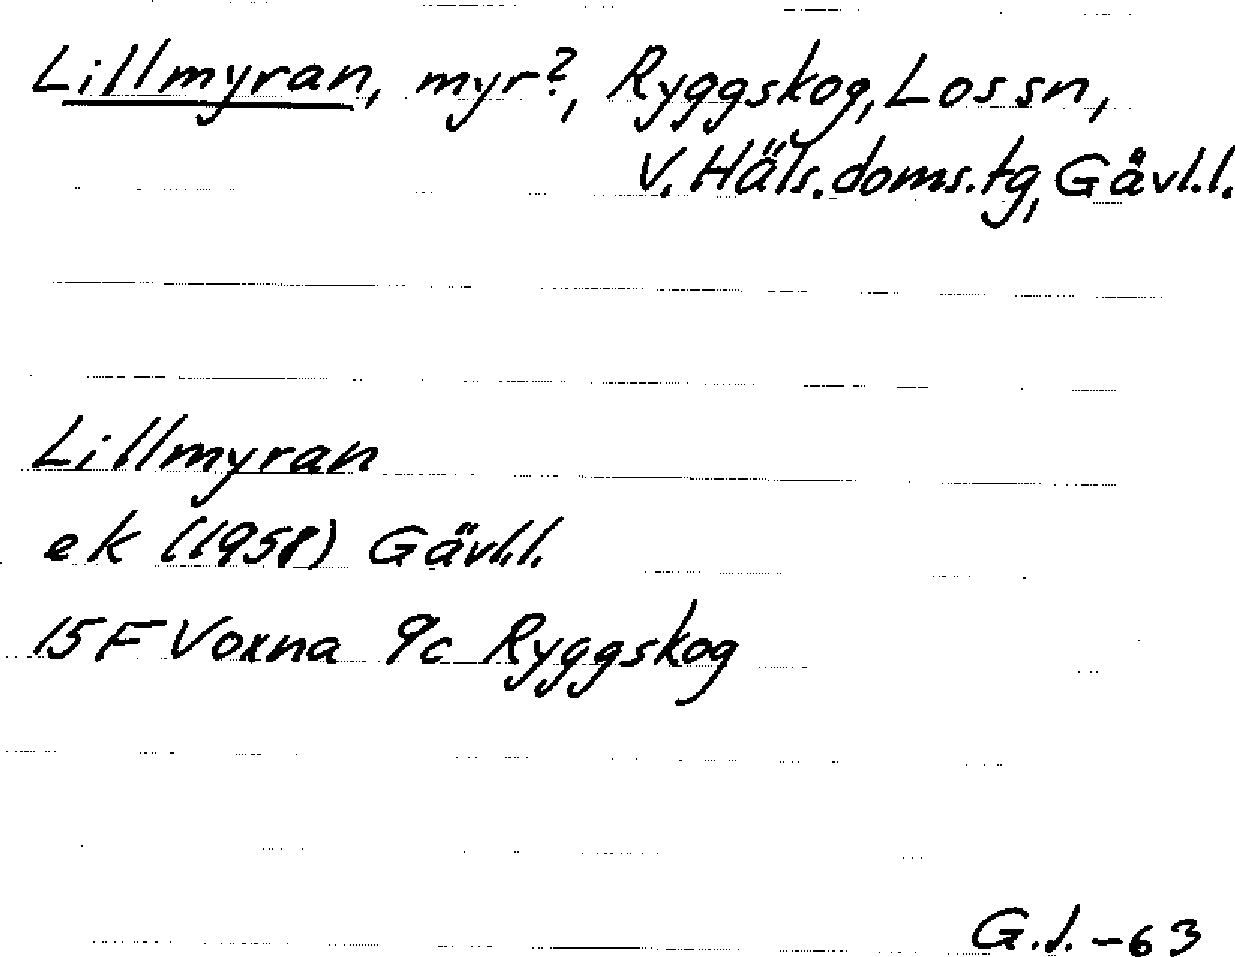 Lillmyran, myr?, Ryggskog, Los sn,
V. Häls. doms. tg, Gävl. l.
Lillmyran
ek (1958) Gävl. l.
15 F Voxna 9c Ryggskog
G. J. -63